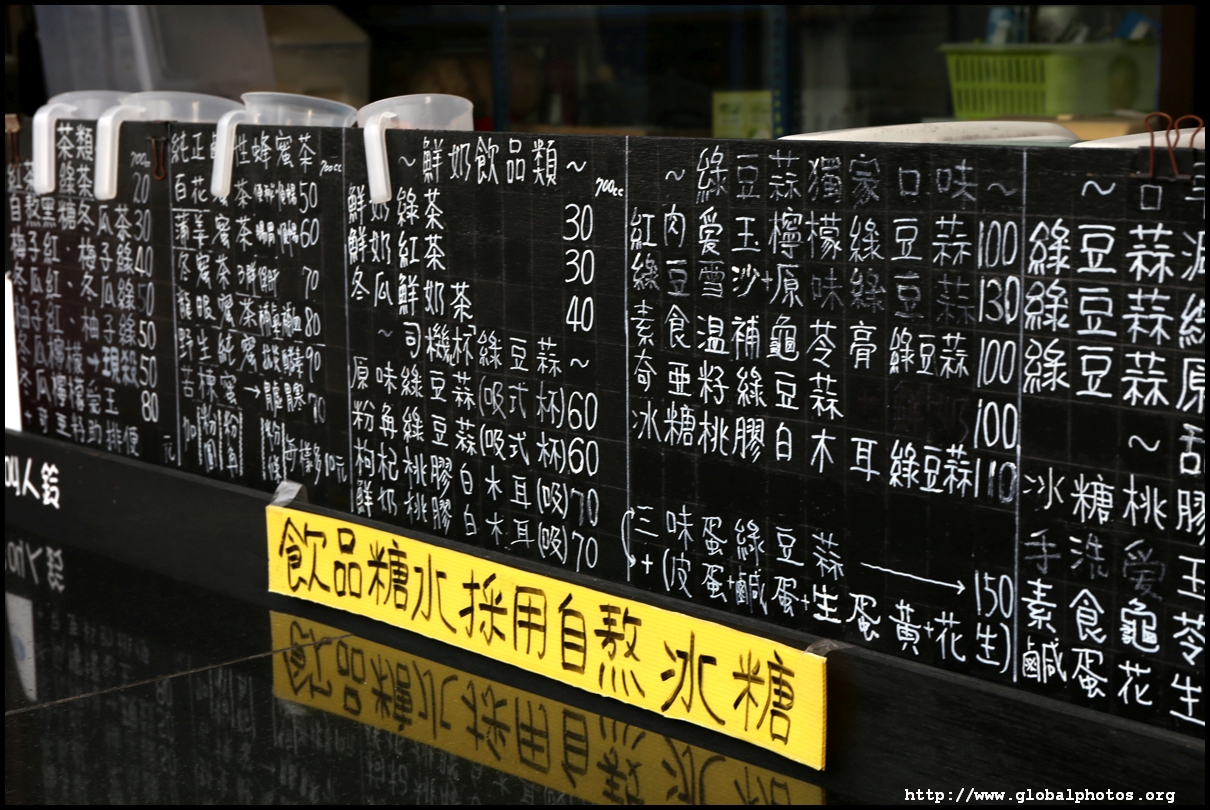 茶類
700cc
20
自熬黑糖冬瓜茶30
梅子紅、梅子綠40
冬瓜紅、冬瓜綠50
柚子紅、柚子綠50
冬瓜檸檬→現榨50
冬瓜檸檬愛玉
80
元
純正
性蜂蜜茶
700cc
百花
茶
50
蜜茶
60
冬蜜茶
70
龍眼蜜茶
80
野生純蜜
90
苦楝蜜→
70
加
粉圓
粉角
粉條
每樣多10元
～鮮奶飲品類～
700cc
鮮奶綠茶
30
鮮奶紅茶
30
冬瓜鮮奶茶
40
～司機杯綠豆蒜～
原味綠豆蒜(吸式杯)60
粉角綠豆蒜(吸式杯)60
枸杞桃膠白木耳(吸)70
鮮奶桃膠白木耳(吸)70
～綠豆蒜獨家口味～
紅肉愛玉檸檬綠豆蒜100
綠豆雪沙+原味綠豆蒜130
素食溫補龜苓膏綠豆蒜100
奇亞籽綠豆蒜
100
冰糖桃膠白木耳綠豆蒜110
三味蛋綠豆蒜
150
+(皮蛋+鹹蛋+生蛋黃+花生)
～口
綠豆蒜
綠豆蒜
綠豆蒜原
～
冰糖桃膠
手洗愛玉
素食龜苓
鹹蛋花生
人鈴
飲品糖水採用自熬冰糖
http://www.globalphotos.org